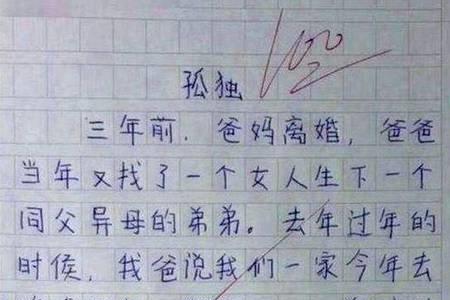 100
孤独
三年前，爸妈离婚，爸爸
当年又找了一个女人生下一个
同父异母的弟弟。去年过年的
时侯，我爸说我们一家今年去